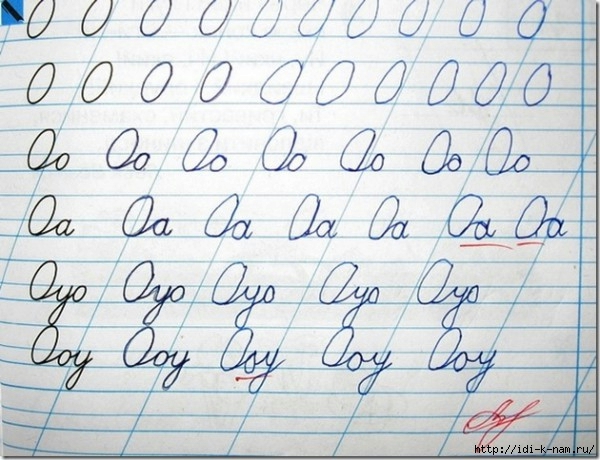 О О О О О О О О О О
О О О О О О О О О О
Оо Оо Оо Оо Оо Оо Оо
Оа Оа Оа Оа Оа Оа Оа
Оуо Оуо Оуо Оуо Оуо
Ооу Ооу Ооу Ооу Ооу
http://idi-k-nam.ru/